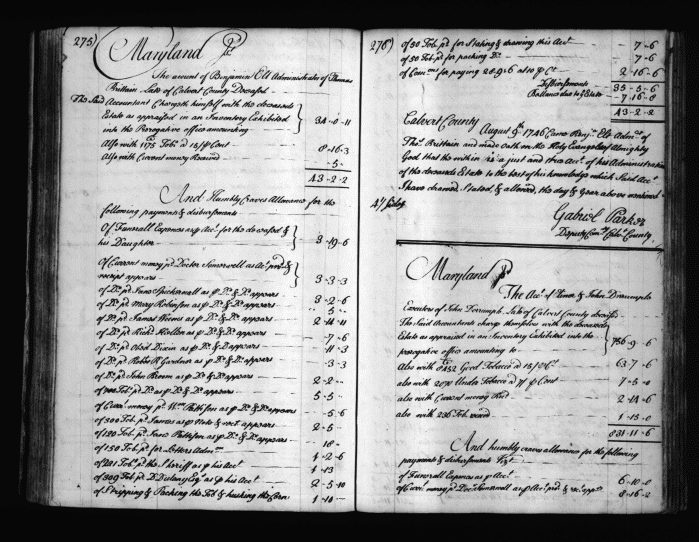 275)
Maryland Ss.
The account of Benjamin Elt Administrator of Thomas
Brittain Late of Calvert County Deceased
The Said Accountant Chargeth himself with the deceaseds
Estate as appraised in an Inventory Exhibited
into the Prerogative office amounting } 34-0-11
Also with 1175 Tob.o at 15/ p Cent 8-16-3
Also with Current money Received - 5-
43-2-2
And Humbly Craves Allowance for the
following payments & disbursments
Of Funerall Expences as p Acc.t for the deceased &
his Daughter } 3-19-6
Of Current money p.d Doctor Somervell as Acc.t prov.d &
receipt appears } 3-3-3
of D.o p.d Jane Spicknall as p D.o & D.o appears 3-2-6
of D.o p.d Mary Robinson as p D.o & D.o appears - 5-
of D.o p.d James Weems as p D.o & D.o appears 2-14-11
of D.o p.d Rich.d Hellen as p D.o & D.o appears - 7-6
of D.o p.d Obed Dixin as p D.o & D.o appears - 11-3
of D.o p.d Rob.t R Gardner as p D.o & D.o appears - 3-3
of D.o p.d John Broom as p D.o & D.o appears 2-2-
of Tob. p.d D.o as p D.o & D.o appears 5-5-
of Curr.t money p.d W.m Pattison as p D.o & D.o appears - 5-6
of 300 Tob. p.d James as p Note & rec.t appears 2-5-
of 120 Tob. p.d Jane Pattison as p D.o & D.o appears - 18-
of 150 Tob. p.d for Letters Adm.n 1-2-6
of 221 Tob. p.d the Sheriff as p his Acc.t 1-13
of 309 Tob. p.d D Dulany Esq.r as p his Acc.t 2-5-10
of Stripping & Packing the Tob & husking the Corn 1-10-
276)
of 50 Tob. p.d for Stating & drawing this Acc.t - 7-6
of 50 Tob. p.d for passing D.o - 7-6
of Com.ns for paying 28-9-6 at 10 p C.t 2-16-6
Disbursments 35-5-6
Ballance due to y.e Estate - 7-16-8
43-2-2
Calvert County
August 9th 1746 Came Benj.n Elt Adm.r of
Tho.s Brittain and made oath on the Holy Evangels of Almighty
God that the within is a just and true Acc.t of his Administration
of the deceaseds Estate to the best of his knowledge which Said Acc.t
I have Examd Stated & allowed, the day & year above mentioned
Gabriel Parker
Deputy Com.y Calv.t County
Maryland Ss.
The Acc.t of & John Dorrumple
Executors of John Dorrumple Late of Calvert County deceased
The Said Accountants charge themselves with the deceaseds
Estate as appraised in an Inventory Exhibited into the
prerogative office amounting to } 756-9-6
Also with 8452 Good Tobacco at 15/ p C.t 63-7-6
also with 2070 Under Tobacco at 7/ p Cent 7-5-0
also with Current money Rec.d 2-14-6
also with 236 Tob. reced 1-15-0
831-11-6
And humbly craves allowance for the following
payments & disbursments Viz.t
of Funerall Expences as p Acc.t 6-10-0
of Curr.t money p.d Doc.r Somervell as p Acc.t prov.d & rec.t app.rs 8-16-2